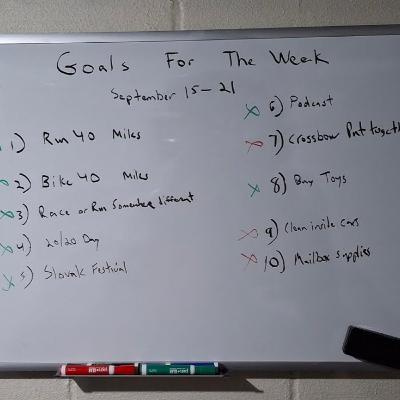 Goals For The Week
September 15-21
1) Run 40 Miles
2) Bike 40 Miles
3) Race or Run Somewhere different
4) 20/20 Day
5) Slovak Festival
6) Podcast
7) Crossbow Put together
8) Buy Toys
9) Clean inside cars
10) Mailbox supplies